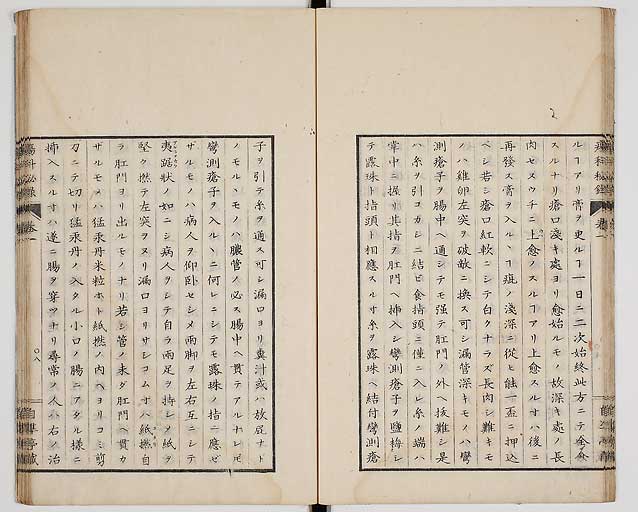 ルヿアリ膏ヲ更ルヿ一日ニ二次始終此方ニテ全愈
スルナリ瘡口淺キ處ヨリ愈始ルモノ故深キ處ノ長
肉セヌウチニ上愈ノスルヿアリ上愈スルオハ後ニ
再發ス膏ヲ入ルヽヿ疵ノ淺深ニ從ヒ蝕一盃ニ押込
ベシ若シ瘡口紅軟ニシテ白クナラズ長肉シ難キモ
ノハ雞卵左突ヲ破敵ニ換ス可シ漏管深キモノハ彎
測瘡子ヲ腸中ヘ通シテモ强テ肛門ノ外ヘ拔難シ是
ハ糸ヲ引ヨカシニ結ビ食指頭ニ僅ニ入レ糸ノ端ハ
掌中ニ握リ其指ヲ肛門ヘ挿入シ彎測瘡子ヲ塩梅シ
テ露珠ト指頭ト相應スルオ糸ヲ露珠ヘ結付彎測瘡
子ヲ引テ糸ヲ通ス可シ漏口ヨリ糞汁或ハ放屁ナト
ノモルヽモノハ膿管ノ必ス腸中ヘ貫テアルナレモ
彎測瘡子ヲ入ルヽニ何レニシテモ露珠ノ指ニ應ゼ
ザルモノハ病人ヲ仰卧セシメ兩脚ヲ左右互ニシテ
夷踞狀ノ如ニシ病人ヲシテ自ラ兩足ヲ持シメ紙ヲ
堅ク撚テ左突ヲヌリ漏口ヨリサシコムオハ紙撚自
ラ肛門ヨリ出ルモノナリ若シ管ノ未ダ肛門ヘ貫カ
ザルモノハ猛汞丹米粒ホト紙撚ノ内ヘヨリコミ剪
刀ニテ切リ猛汞丹ノ入タル小口ノ腸ニアタル樣ニ
挿入スルオハ遂ニ腸ヲ穿ツナリ尋常ノ人ハ右ノ治
瘍科秘錄
卷一
○八